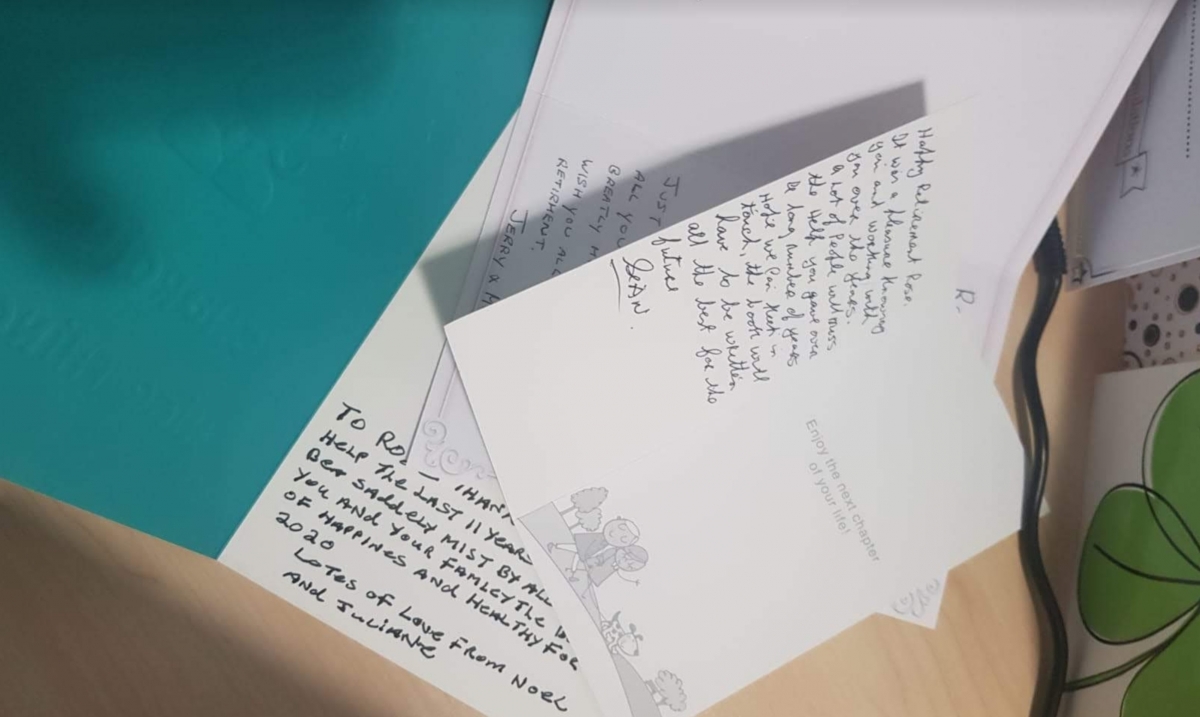 Happy Retirement Rose.
It was a pleasure knowing
you and working with
you over the years.
A lot of People will miss
the help you gave over
a long number of years
Hope we can keep in
touch, the book will
have to be written
all the best for the
future
SEAN.
Enjoy the next chapter
of your life!
R-
JUST
ALL YOU
GREATLY
WISH YOU ALL
RETIRMENT.
JERRY &
TO
HELP THE LAST 11 YEAR
SADDELY MIST BY ALL
YOU AND YOUR FAMLEY THE
OF HAPPINES AND HEALTHY FOR
2020
LOTES OF LOVE FROM NOEL
AND JULIANNE